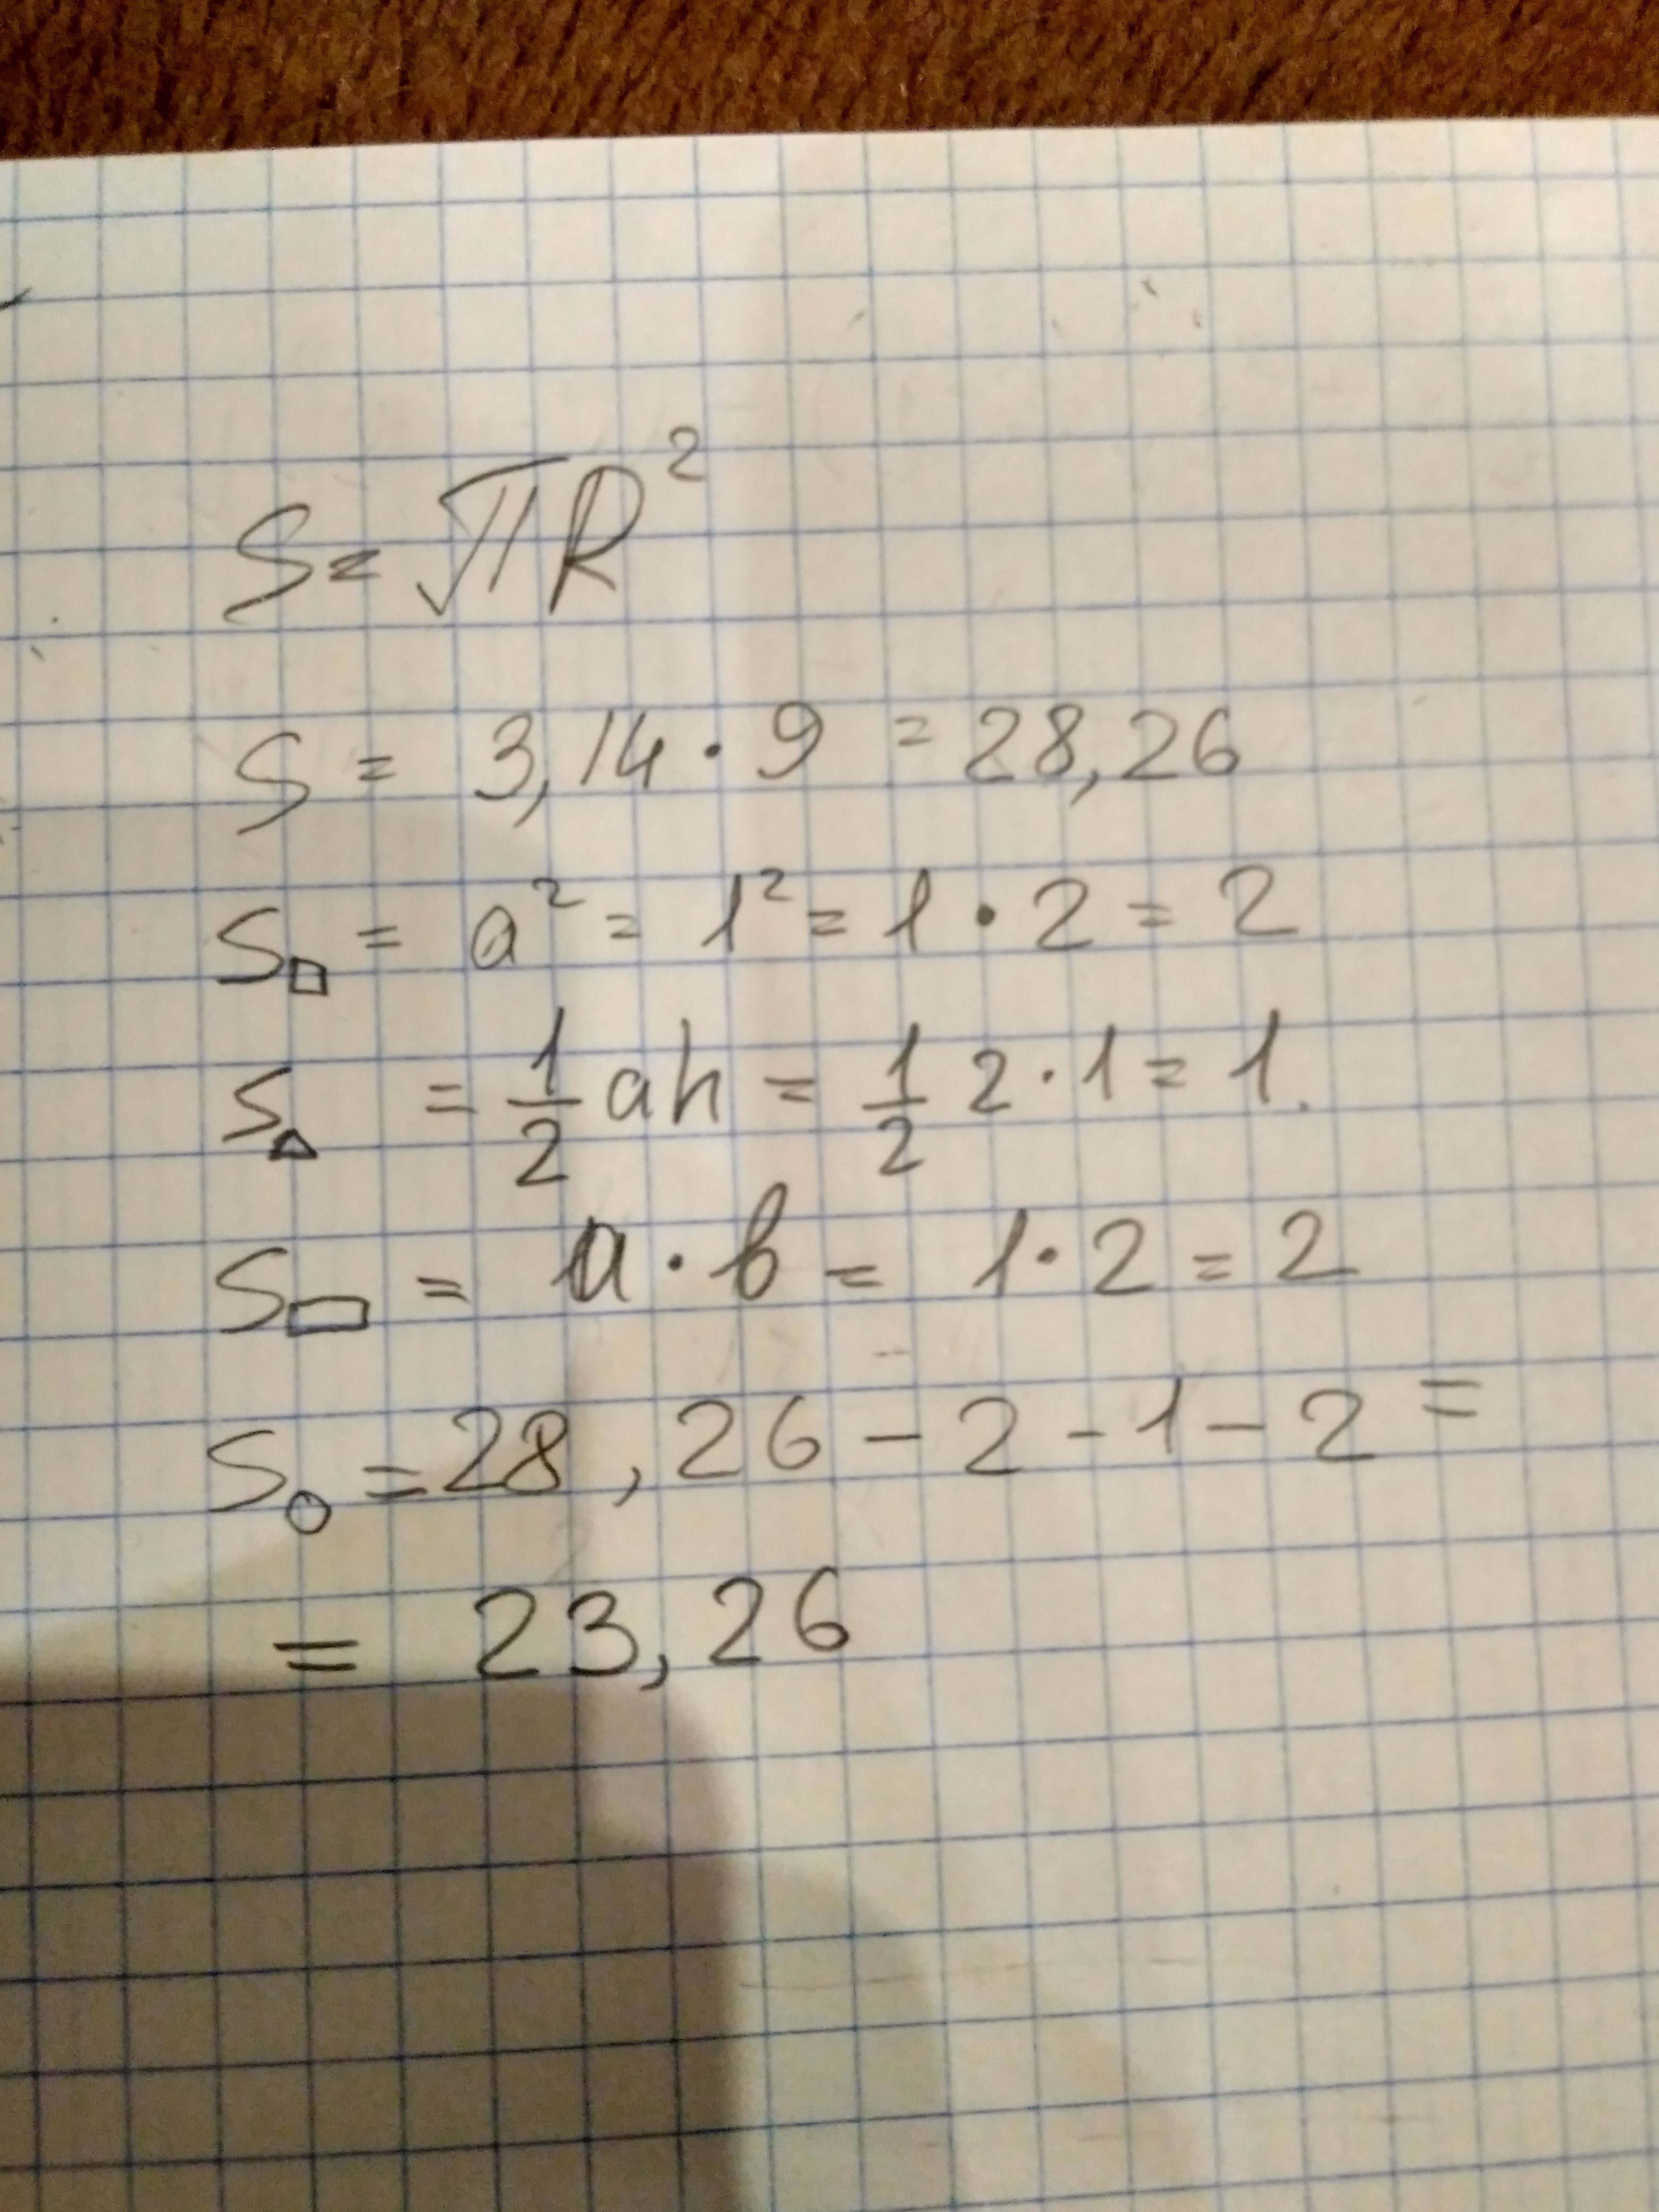 S = πR²
S = 3,14 · 9 = 28,26
S□ = a² = 1² = 1 · 2 = 2
S△ = 1/2 ah = 1/2 2 · 1 = 1.
S▭ = a · b = 1 · 2 = 2
S○ = 28,26 - 2 - 1 - 2 =
= 23,26